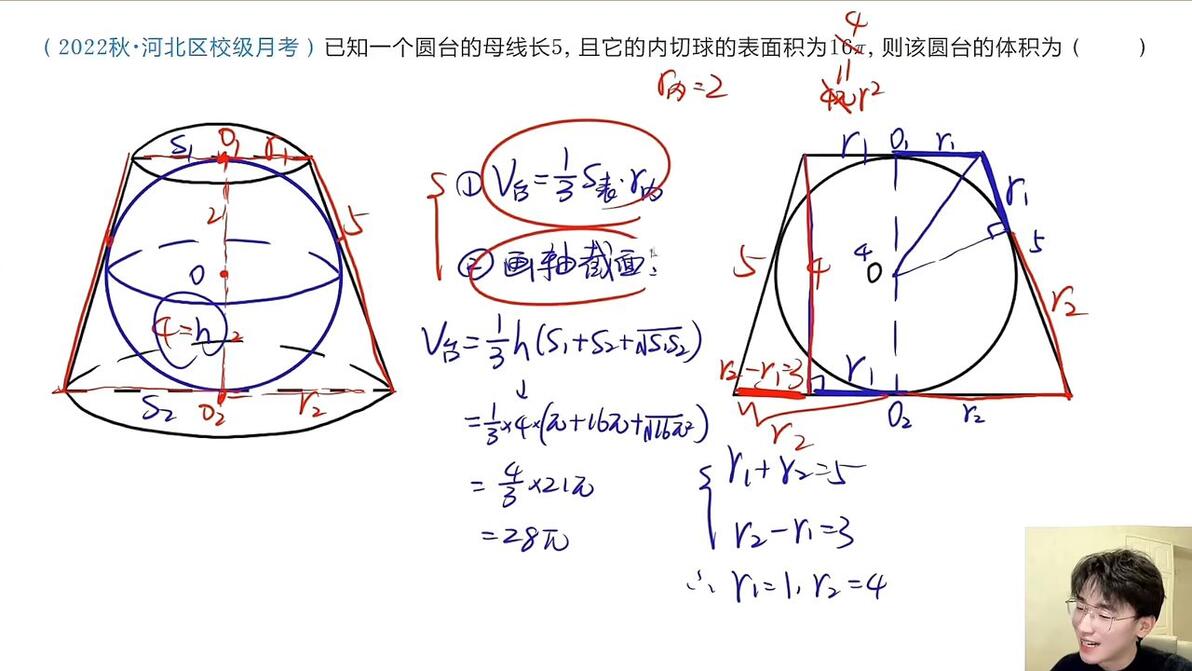 （2022秋·河北区校级月考）已知一个圆台的母线长5，且它的内切球的表面积为16π，则该圆台的体积为（ ）
4
||
4πr²
r内=2
S₁ O₁ r₁
2
5
O
4=h 2
S₂ O₂ r₂
① V台=1/3 S表·r内
② 画轴截面：
V台=1/3h(S₁+S₂+√S₁S₂)
↓
=1/3×4×(π+16π+√16π²)
=4/3×21π
=28π
r₁ O₁ r₁
r₁
5 4 4 O 5
r₂
r₂-r₁=3 r₁
O₂ r₂
r₂
r₁+r₂=5
r₂-r₁=3
∴ r₁=1, r₂=4